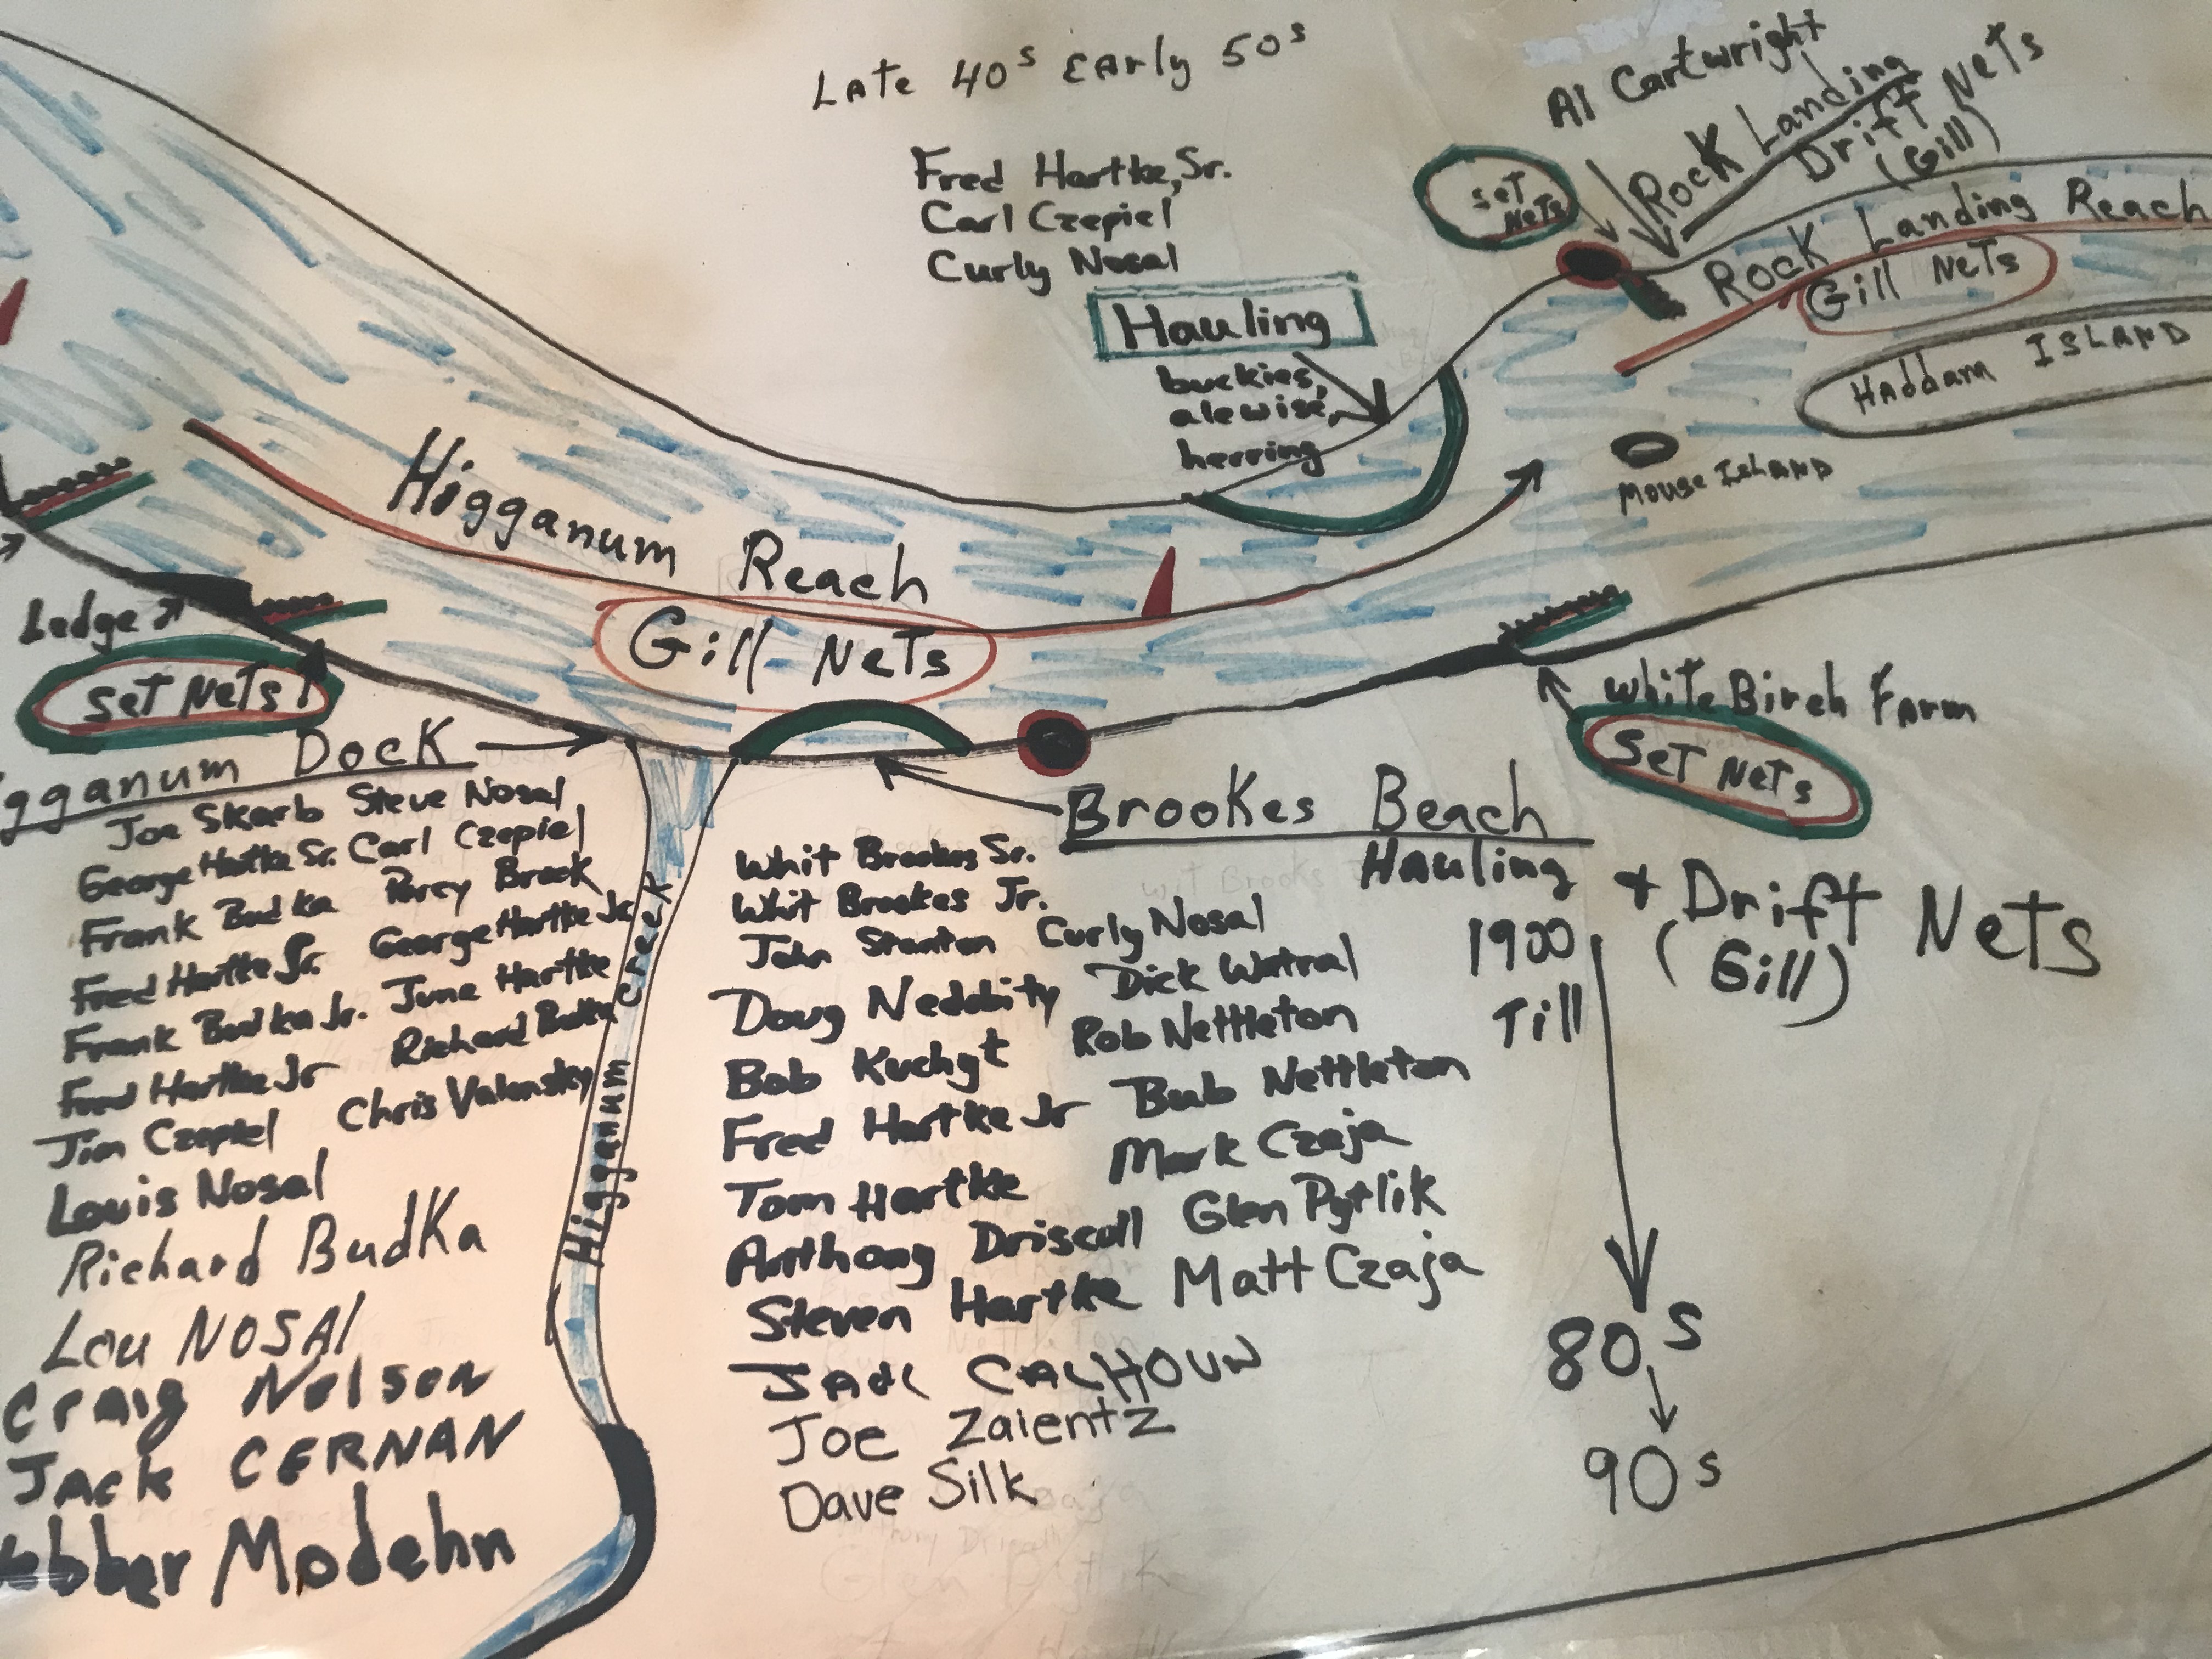 Late 40s Early 50s
Fred Hartke, Sr.
Carl Czepiel
Curly Nosal
Hauling
buckies,
alewise,
herring
Al Cartwright
Rock Landing
Drift Nets
(Gill)
Set
Nets
Rock Landing Reach
Gill Nets
Haddam Island
Mouse Island
Higganum Reach
Gill Nets
Ledge
Set Nets
White Birch Farm
Set Nets
gganum Dock
Joe Skarb Steve Nosal
George Hartke Sr. Carl Czepiel
Frank Budka Percy Brock
Fred Hartke Sr. George Hartke Jr.
Frank Budka Jr. June Hartke
Fred Hartke Jr Richard Budka
Jim Czepiel Chris Valensky
Louis Nosal
Richard Budka
Lou Nosal
Craig Nelson
Jack Cernan
ebber Modehn
Higganum Creek
Brookes Beach
Hauling + Drift Nets
(Gill)
1900
Till
80s
90s
Whit Brookes Sr.
Whit Brookes Jr.
John Stanton Curly Nosal
Doug Nedobity Dick Watral
Bob Kuchyt Rob Nettleton
Fred Hartke Jr Bub Nettleton
Tom Hartke Mark Czaja
Anthony Driscoll Glen Pytlik
Steven Hartke Matt Czaja
CALHOUN
Joe Zaientz
Dave Silk